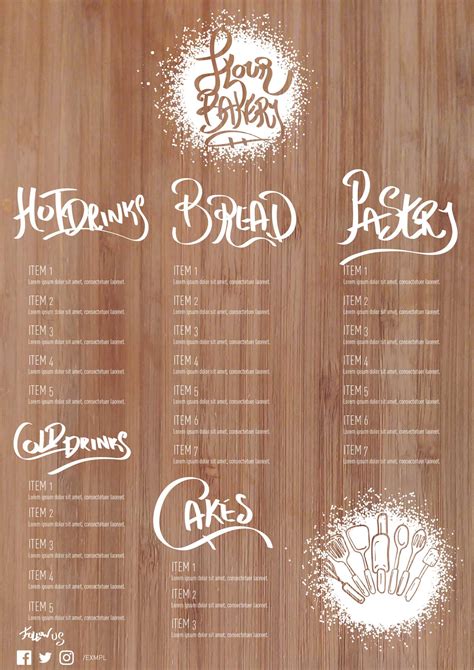 Flour
Bakery
Hot Drinks
ITEM 1
Lorem ipsum dolor sit amet, consectetuer laoreet.
ITEM 2
Lorem ipsum dolor sit amet, consectetuer laoreet.
ITEM 3
Lorem ipsum dolor sit amet, consectetuer laoreet.
ITEM 4
Lorem ipsum dolor sit amet, consectetuer laoreet.
ITEM 5
Lorem ipsum dolor sit amet, consectetuer laoreet.
Cold Drinks
ITEM 1
Lorem ipsum dolor sit amet, consectetuer laoreet.
ITEM 2
Lorem ipsum dolor sit amet, consectetuer laoreet.
ITEM 3
Lorem ipsum dolor sit amet, consectetuer laoreet.
ITEM 4
Lorem ipsum dolor sit amet, consectetuer laoreet.
ITEM 5
Lorem ipsum dolor sit amet, consectetuer laoreet.
Follow us
/EXMPL
Bread
ITEM 1
Lorem ipsum dolor sit amet, consectetuer laoreet.
ITEM 2
Lorem ipsum dolor sit amet, consectetuer laoreet.
ITEM 3
Lorem ipsum dolor sit amet, consectetuer laoreet.
ITEM 4
Lorem ipsum dolor sit amet, consectetuer laoreet.
ITEM 5
Lorem ipsum dolor sit amet, consectetuer laoreet.
ITEM 6
Lorem ipsum dolor sit amet, consectetuer laoreet.
ITEM 7
Lorem ipsum dolor sit amet, consectetuer laoreet.
Cakes
ITEM 1
Lorem ipsum dolor sit amet, consectetuer laoreet.
ITEM 2
Lorem ipsum dolor sit amet, consectetuer laoreet.
ITEM 3
Lorem ipsum dolor sit amet, consectetuer laoreet.
ITEM 4
Lorem ipsum dolor sit amet, consectetuer laoreet.
Pastry
ITEM 1
Lorem ipsum dolor sit amet, consectetuer laoreet.
ITEM 2
Lorem ipsum dolor sit amet, consectetuer laoreet.
ITEM 3
Lorem ipsum dolor sit amet, consectetuer laoreet.
ITEM 4
Lorem ipsum dolor sit amet, consectetuer laoreet.
ITEM 5
Lorem ipsum dolor sit amet, consectetuer laoreet.
ITEM 6
Lorem ipsum dolor sit amet, consectetuer laoreet.
ITEM 7
Lorem ipsum dolor sit amet, consectetuer laoreet.